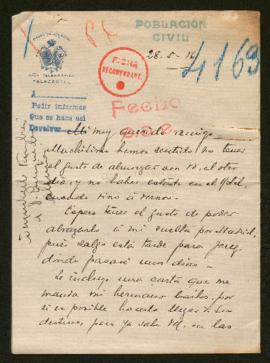 POBLACION
CIVIL
28-5-16
4169
FECHA
Fecho
A
Pedir informes
que se hace así
Devolver
Mi muy querido amigo
Muchísimo hemos sentido no tener
el gusto de almorzar con Vd. el otro
día y no haber estado en el Hotel
cuando vino a vernos.
Espero tener el gusto de poder
abrazarlo a mi vuelta por Madrid,
pues salgo esta tarde para Jerez
donde pasaré unos días.
Le incluyo una carta que me
manda mi hermano Carlos, por
si es posible hacerla llegar a su
destino, pues ya sabe Vd. en las